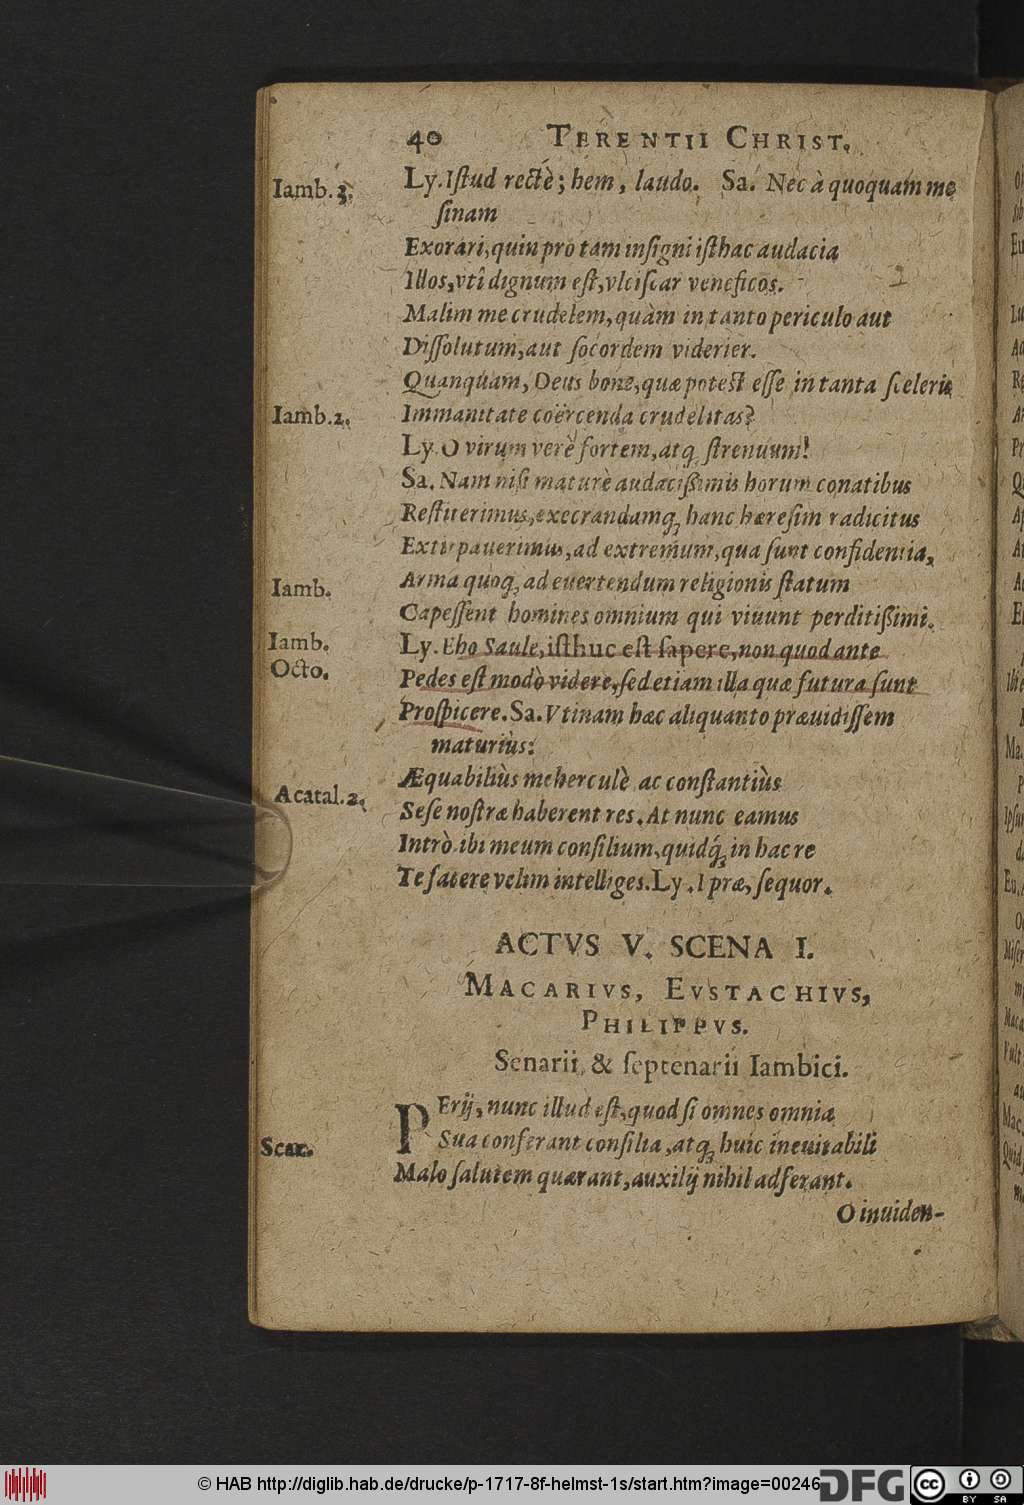 40 TERENTII CHRIST.
Iamb. 3. Ly. Iſtud rectè; hem, laudo. Sa. Nec à quoquam me
ſinam
Exorari, quin pro tam inſigni iſthac audacia
Illos, vtî dignum eſt, vlciſcar veneficos.
Malim me crudelem, quàm in tanto periculo aut
Diſſolutum, aut ſocordem viderier.
Quanquam, Deus bone, quæ poteſt eſſe in tanta ſceleris
Iamb. 2. Immanitate coërcenda crudelitas?
Ly. O virum verè fortem, atq; ſtrenuum!
Sa. Nam niſi maturè audacißimis horum conatibus
Reſtiterimus, execrandamq; hanc hæreſim radicitus
Extirpauerimus, ad extremum, qua ſunt confidentia,
Iamb. Arma quoq; ad euertendum religionis ſtatum
Capeſſent homines omnium qui viuunt perditißimi.
Iamb. Ly. Eho Saule, iſthuc eſt ſapere, non quod ante
Octo. Pedes eſt modò videre, ſed etiam illa quæ futura ſunt
Proſpicere. Sa. Vtinam hæc aliquanto præuidiſſem
maturiùs:
Æquabiliùs meherculè ac conſtantiùs
Acatal. 2. Seſe noſtræ haberent res. At nunc eamus
Intrò. ibi meum conſilium, quidq́; in hac re
Te facere velim intelliges. Ly. I præ, ſequor.
ACTVS V. SCENA I.
MACARIVS, EVSTACHIVS,
PHILIPPVS.
Senarii, & ſeptenarii Iambici.
PErij, nunc illud eſt, quod ſi omnes omnia
Scaz. Sua conferant conſilia, atq; huic ineuitabili
Malo ſalutem quærant, auxilij nihil adferant.
O inuiden-
© HAB http://diglib.hab.de/drucke/p-1717-8f-helmst-1s/start.htm?image=00246
DFG
cc BY SA